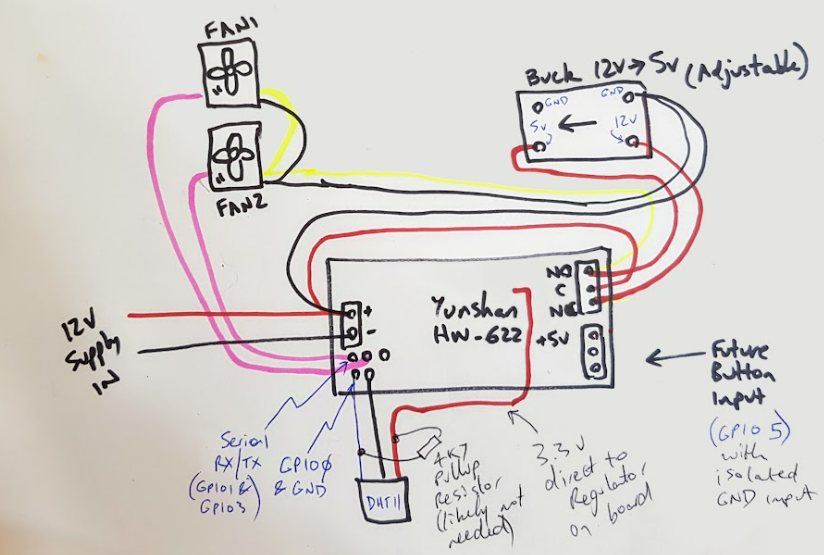 FAN1
Buck 12V → 5V (Adjustable)
GND
GND
5V ← 12V
FAN2
NO
C
NC
Yunshan
HW-622
+5V
+
-
12V
Supply
IN
Future
Button
Input
(GPIO 5)
with
isolated
GND input
Serial
RX/TX
(GPIO1&
GPIO3)
GPIO0
& GND
4K7
pullup
resistor
(likely not
needed)
3.3V
direct to
Regulator
on board
DHT11